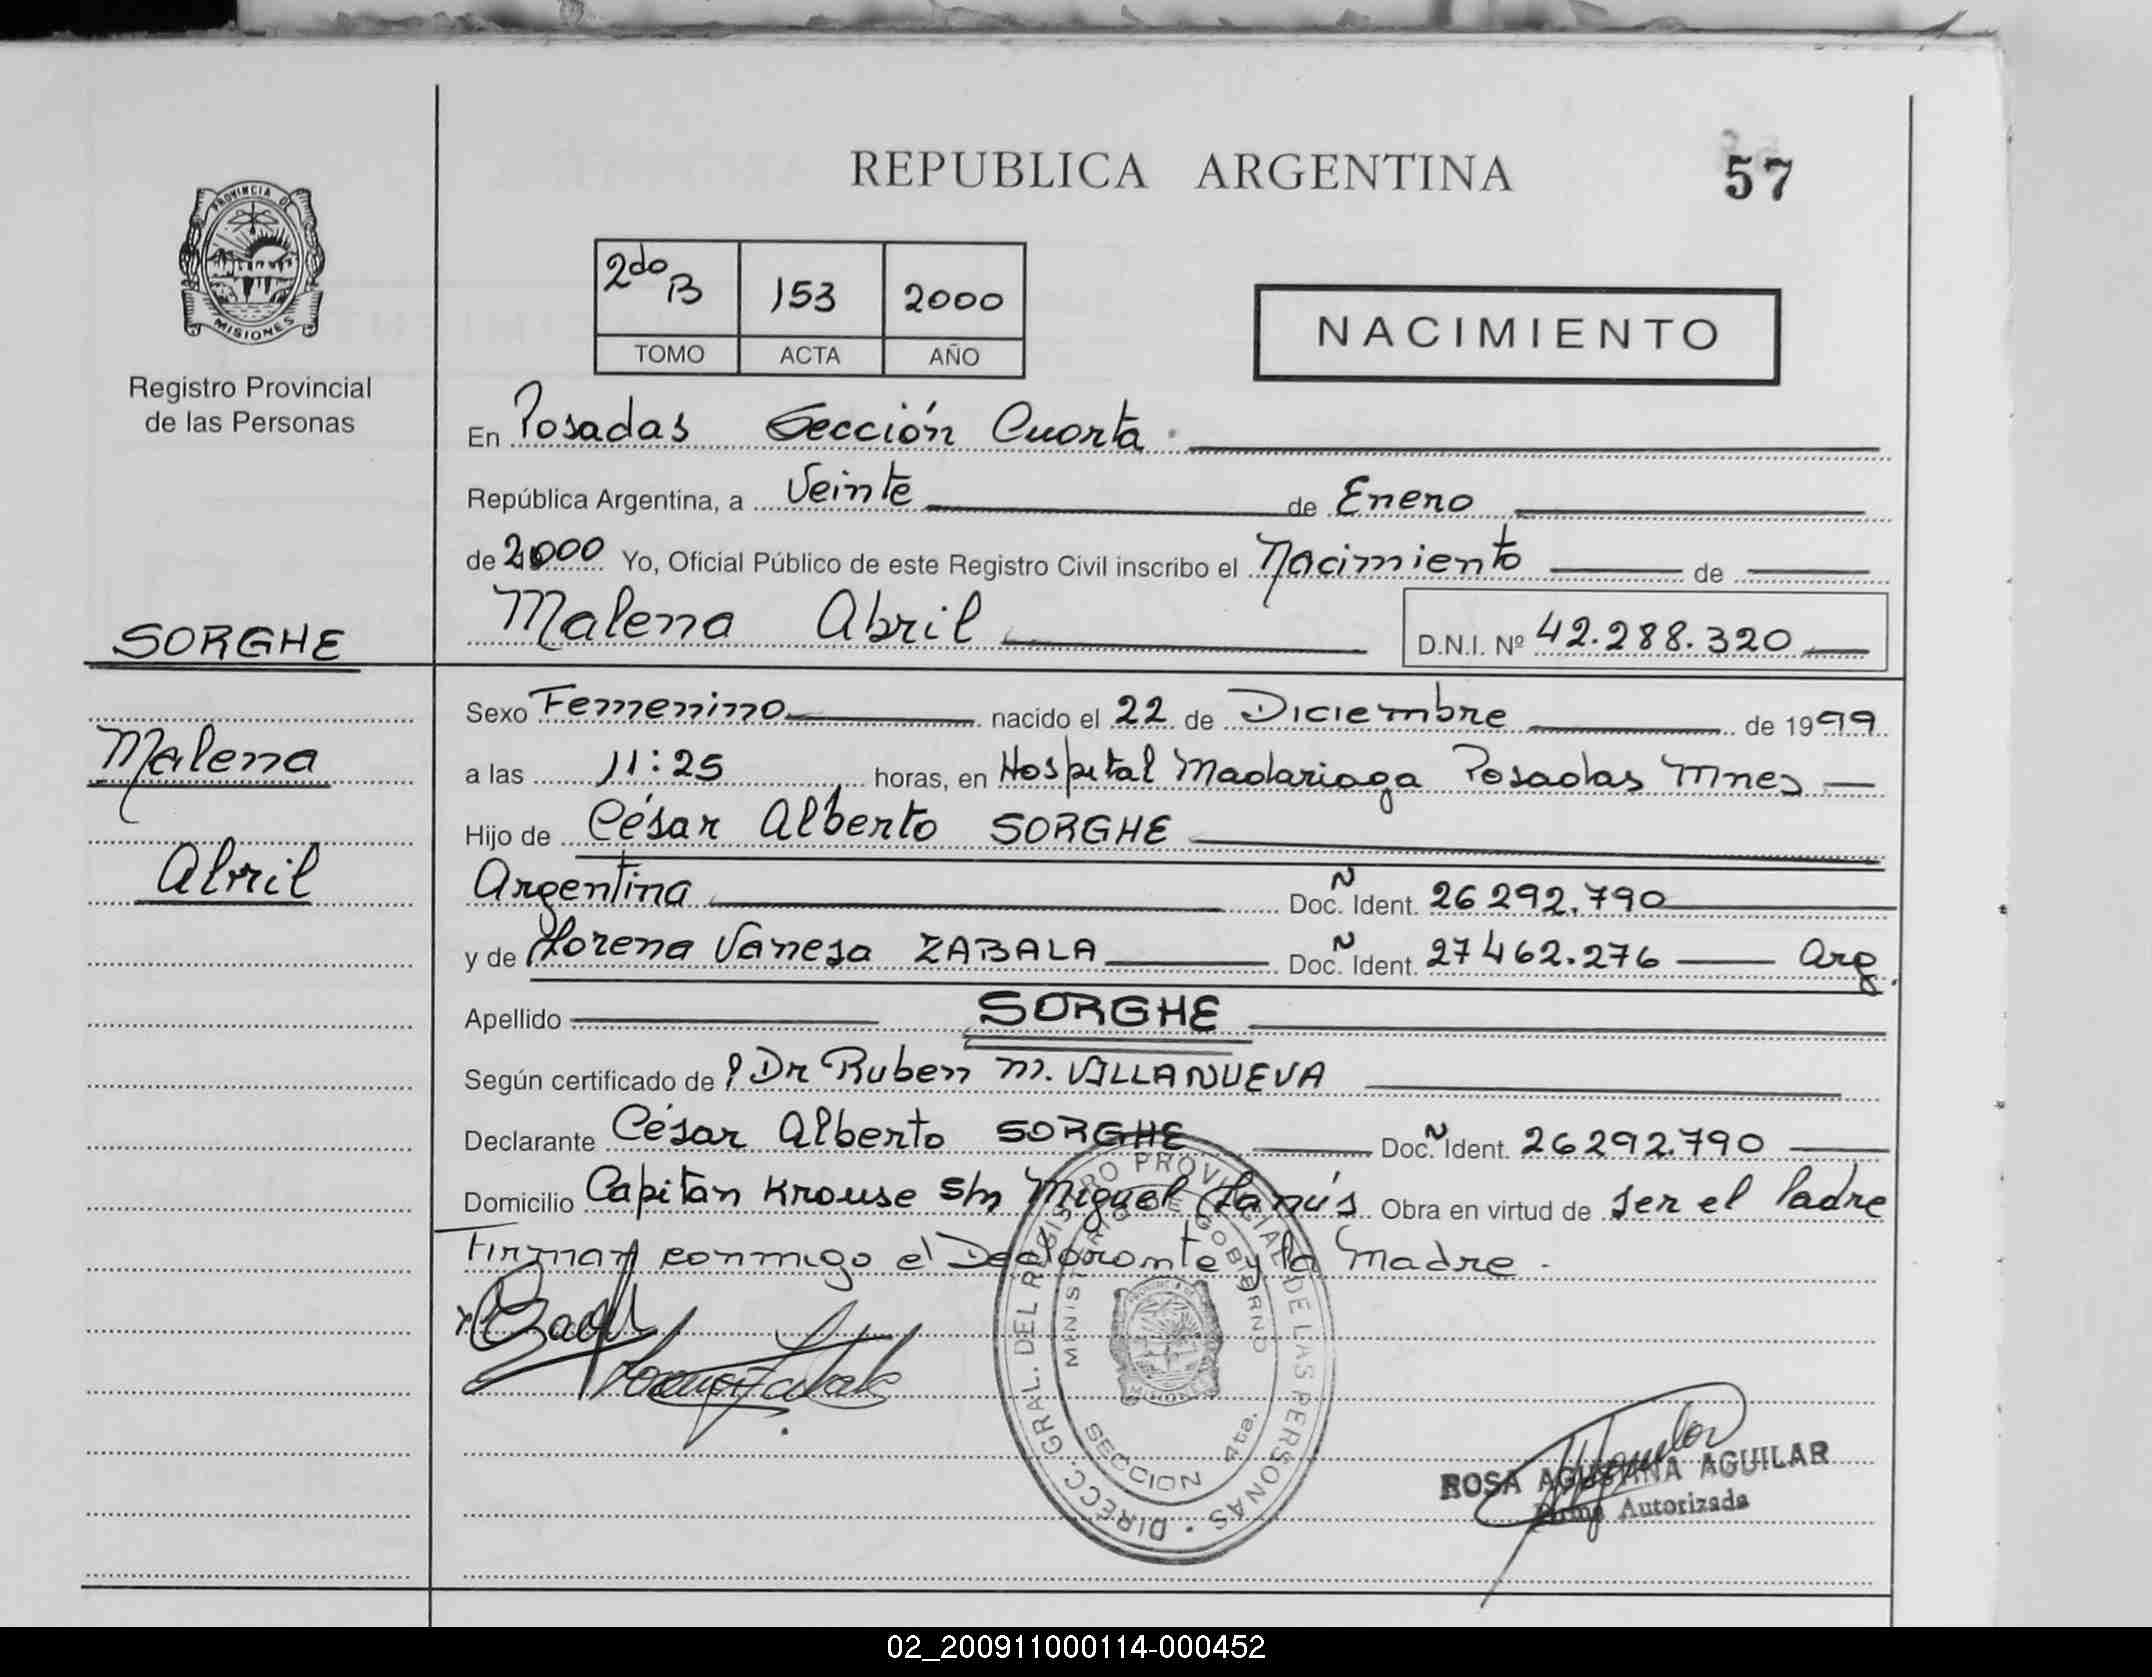 REPUBLICA ARGENTINA
57
PROVINCIA DE
MISIONES
Registro Provincial
de las Personas
2do B 153 2000
TOMO ACTA AÑO
NACIMIENTO
En Posadas Sección Cuarta
República Argentina, a Veinte de Enero
de 2000 Yo, Oficial Público de este Registro Civil inscribo el Nacimiento de
Malena Abril D.N.I. Nº 42.288.320
SORGHE
Malena
Abril
Sexo Femenino nacido el 22 de Diciembre de 1999
a las 11:25 horas, en Hospital Madariaga Posadas Mnes
Hijo de César Alberto SORGHE
Argentina Doc. Ident. N 26292.790
y de Lorena Vanesa ZABALA Doc. Ident. N 27462.276 Arg.
Apellido SORGHE
Según certificado de Dr Ruben M. VILLANUEVA
Declarante César Alberto SORGHE Doc. N Ident. 26292.790
Domicilio Capitan Krouse s/n Miguel Lanús Obra en virtud de ser el Padre
Firman conmigo el Declarante y la Madre.
DIRECC. GRAL. DEL REGISTRO PROVINCIAL DE LAS PERSONAS
MINISTERIO DE GOBIERNO
SECCION 4ta.
ROSA AGUSTINA AGUILAR
Firma Autorizada
02_200911000114-000452